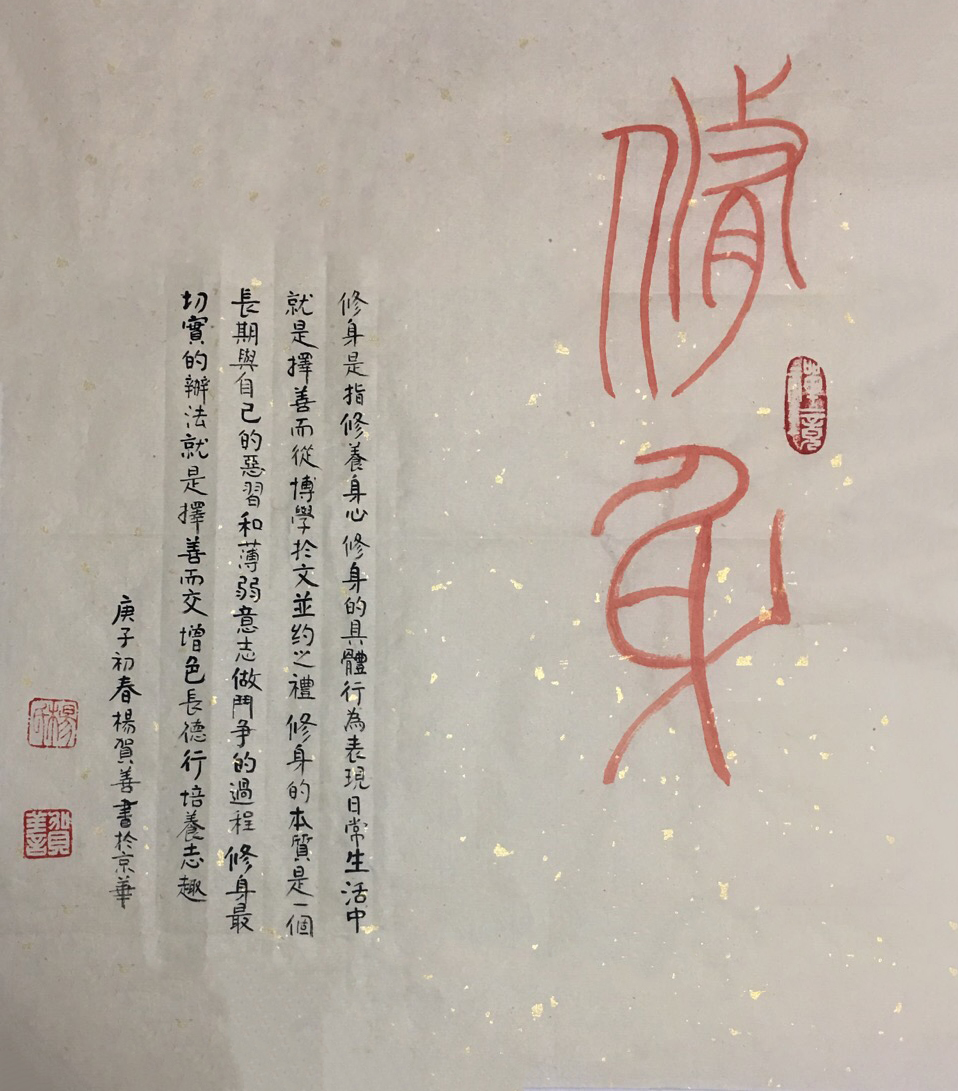 修身
修身是指修養身心修身的具體行為表現日常生活中
就是擇善而從博學於文並约之禮修身的本質是一個
長期與自己的惡習和薄弱意志做鬥争的過程修身最
切實的辦法就是擇善而交增色長德行培養志趣
庚子初春楊賀善書於京華
楊氏
賀善